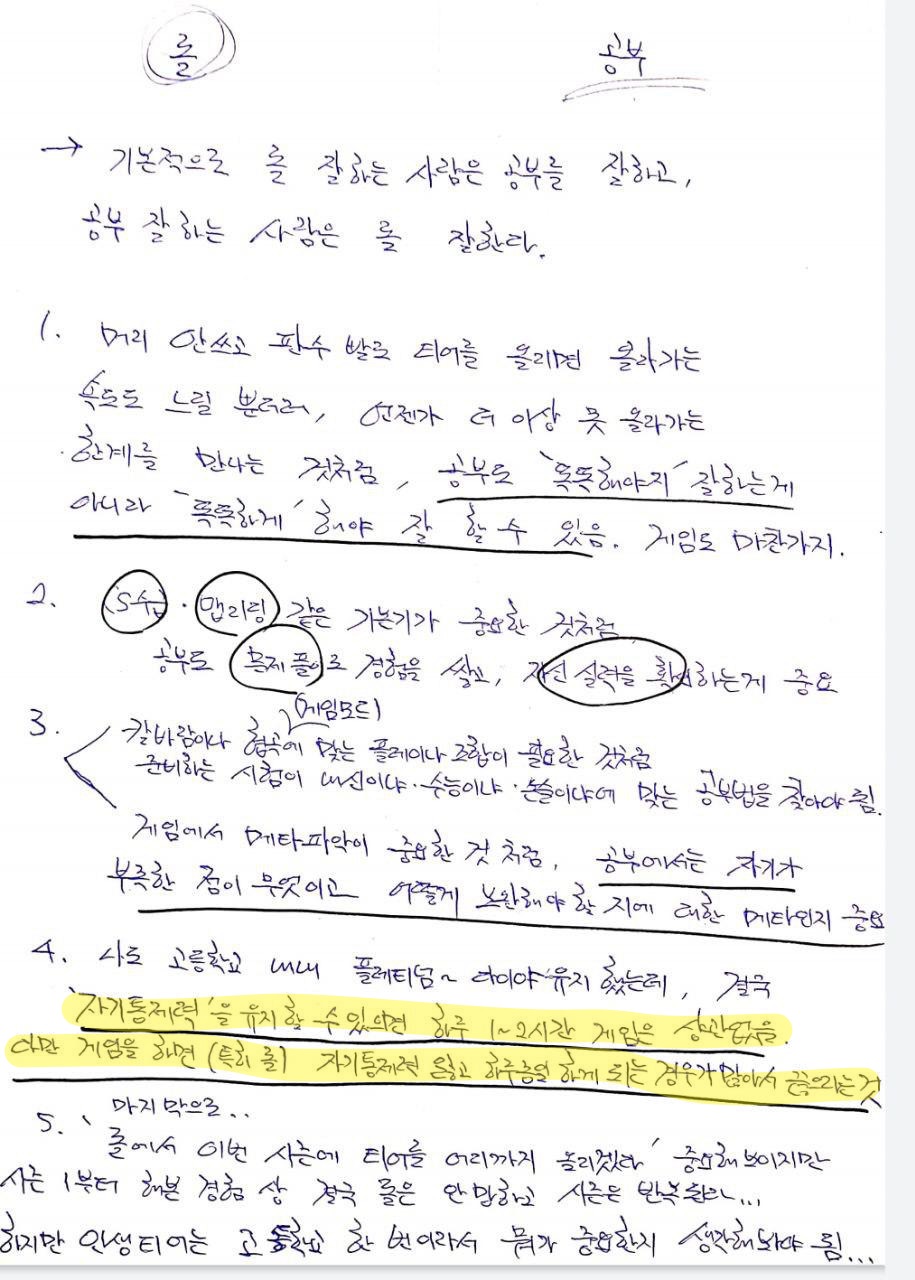 롤 공부
→ 기본적으로 롤 잘하는 사람은 공부를 잘하고,
공부 잘하는 사람은 롤 잘한다.
1. 머리 안쓰고 판수 빨로 티어를 올리면 올라가는
속도도 느릴 뿐더러, 언젠가 더 이상 못 올라가는
한계를 만나는 것처럼, 공부도 '똑똑해야지' 잘하는게
아니라 '똑똑하게' 해야 잘 할 수 있음. 게임도 마찬가지.
2. CS수급·맵리딩 같은 기본기가 중요한 것처럼
공부도 문제 풀이로 경험을 쌓고, 자신 실력을 확인하는게 중요
3. 칼바람이나 협곡에(게임모드) 맞는 플레이나 조합이 필요한 것처럼
준비하는 시험이 내신이냐·수능이냐·논술이냐에 맞는 공부법을 찾아야 됨.
게임에서 메타파악이 중요한 것 처럼, 공부에서는 자기가
부족한 점이 무엇이고 어떻게 보완해야 할 지에 대한 메타인지 중요
4. 나도 고등학교 내내 플레티넘~다이아 유지 했는데, 결국
'자기통제력'을 유지할 수 있으면 하루 1~2시간 게임은 상관없음.
다만 게임을 하면 (특히 롤) 자기통제력 잃고 하루종일 하게 되는 경우가 많아서 끊으라는 것
5. 마지막으로..
'롤에서 이번 시즌에 티어를 어디까지 올리겠다' 중요해 보이지만
시즌 1부터 해본 경험 상 결국 롤은 안 망하고 시즌은 반복된다...
하지만 인생티어는 고등학교 한 번이라서 뭐가 중요한지 생각해봐야 됨...